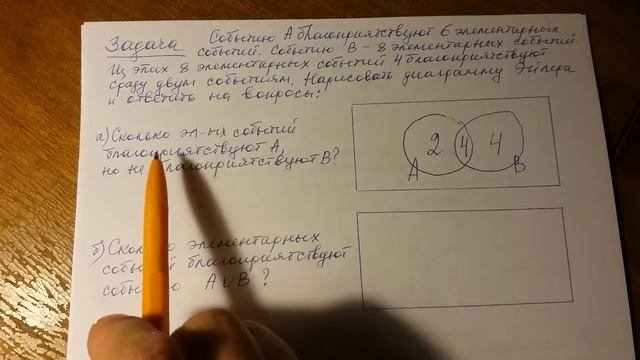 Задача Событию А благоприятствуют 6 элементарных
событий. Событию В – 8 элементарных событий.
Из этих 8 элементарных событий 4 благоприятствуют
сразу двум событиям. Нарисовать диаграмму Эйлера
и ответить на вопросы:
а) Сколько эл-ых событий
благоприятствуют А,
но не благоприятствуют В?
2 4 4
А В
б) Сколько элементарных
событий благоприятствуют
событию А∪В ?